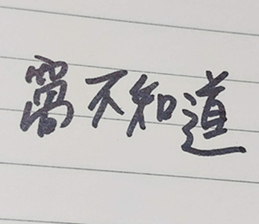 窝不知道